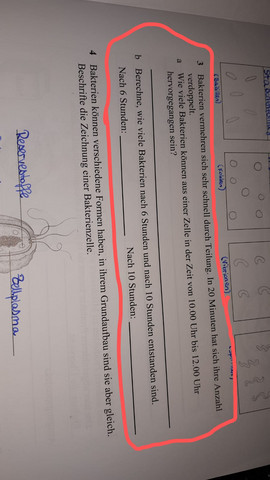 (Stäbchen)
(Kokken)
3 Bakterien vermehren sich sehr schnell durch Teilung. In 20 Minuten hat sich ihre Anzahl
verdoppelt.
a Wie viele Bakterien können aus einer Zelle in der Zeit von 10.00 Uhr bis 12.00 Uhr
hervorgegangen sein?
b Berechne, wie viele Bakterien nach 6 Stunden und nach 10 Stunden entstanden sind.
Nach 6 Stunden: Nach 10 Stunden:
4 Bakterien können verschiedene Formen haben, in ihrem Grundaufbau sind sie aber gleich.
Beschrifte die Zeichnung einer Bakterienzelle.
Reservestoffe
Zellplasma